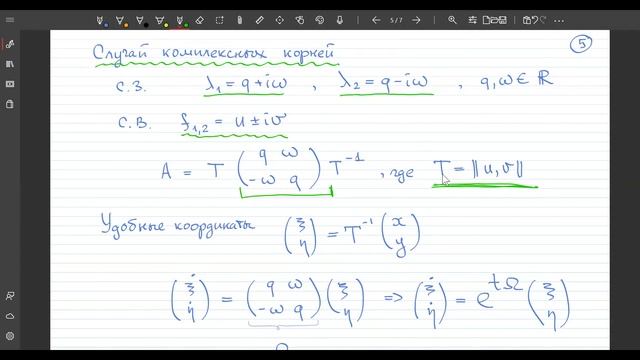 5/7
Случай комплексных корней
5
с.з. λ₁ = q+iω , λ₂ = q−iω , q,ω ∈ ℝ
с.в. f₁,₂ = u ± iv
A = T (q ω; −ω q) T⁻¹ , где T = ‖u,v‖
Удобные координаты (ξ; η) = T⁻¹ (x; y)
(ξ̇; η̇) = (q ω; −ω q) (ξ; η) => (ξ̇; η̇) = e^{tΩ} (ξ; η)